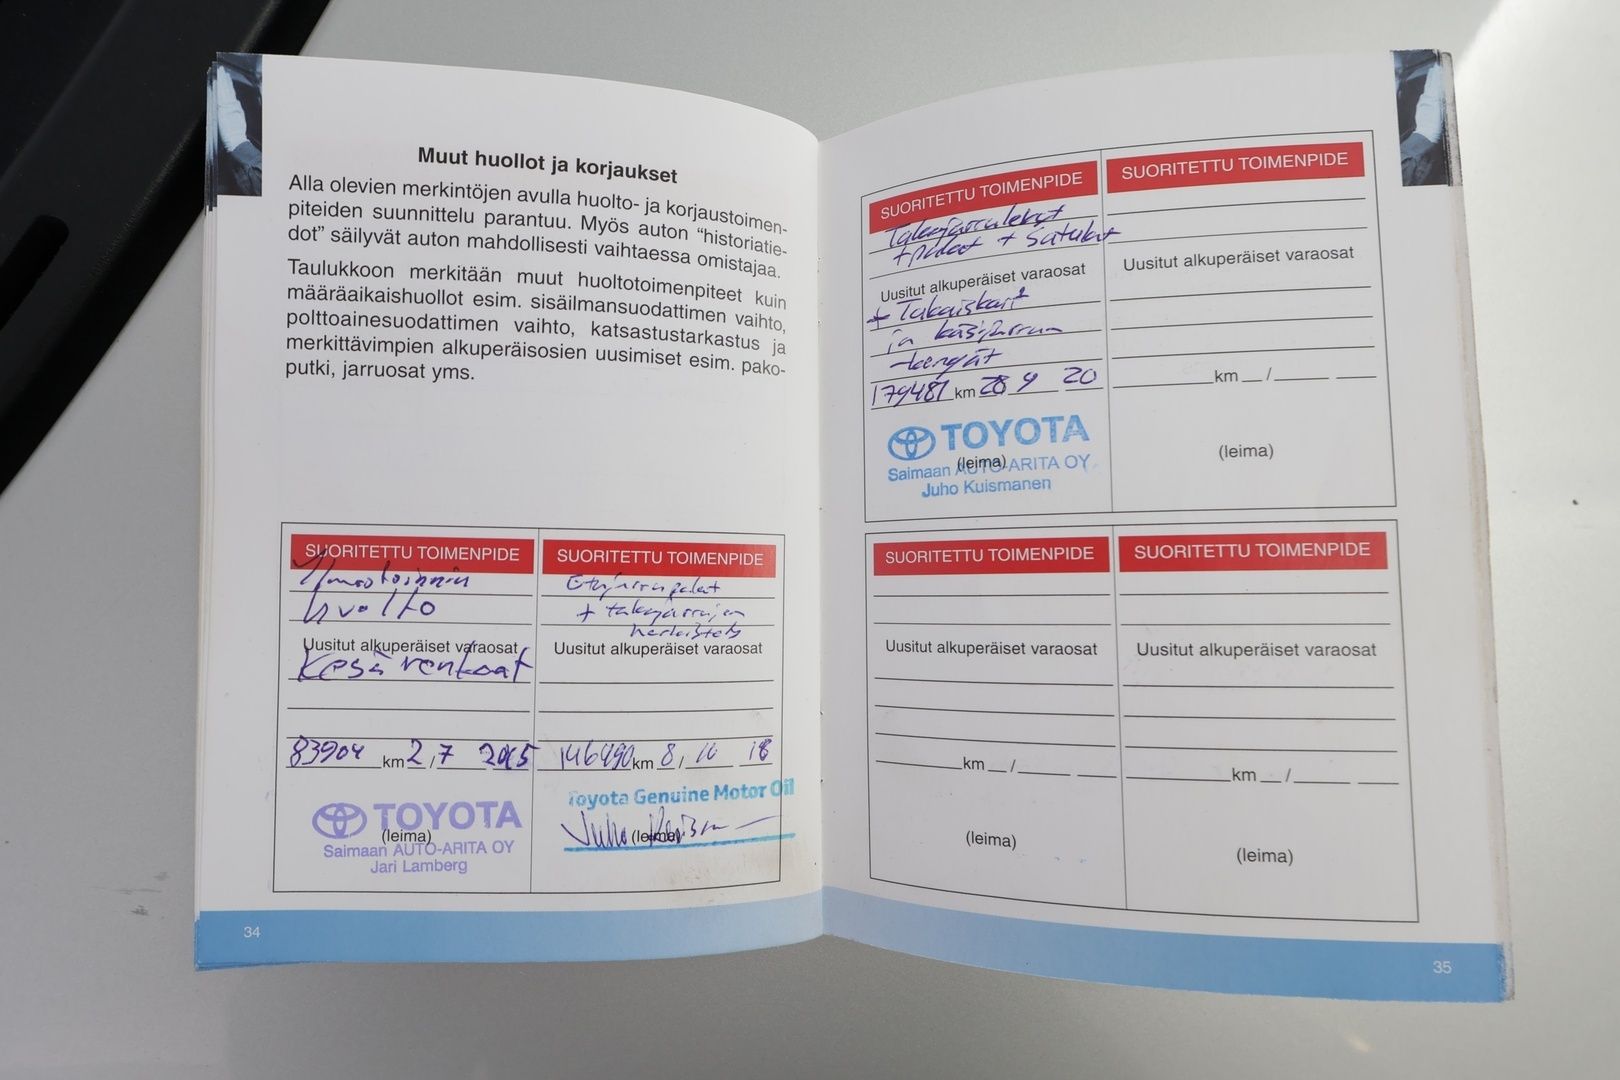 Muut huollot ja korjaukset
Alla olevien merkintöjen avulla huolto- ja korjaustoimen-
piteiden suunnittelu parantuu. Myös auton "historiatie-
dot" säilyvät auton mahdollisesti vaihtaessa omistajaa.
Taulukkoon merkitään muut huoltotoimenpiteet kuin
määräaikaishuollot esim. sisäilmansuodattimen vaihto,
polttoainesuodattimen vaihto, katsastustarkastus ja
merkittävimpien alkuperäisosien uusimiset esim. pako-
putki, jarruosat yms.
SUORITETTU TOIMENPIDE
huolto
Uusitut alkuperäiset varaosat
Kesärenkaat
83904 km 2 / 7 2015
TOYOTA
(leima)
Saimaan AUTO-ARITA OY
Jari Lamberg
SUORITETTU TOIMENPIDE
Etujarrupalat
+ takajarrujen
Uusitut alkuperäiset varaosat
146490 km 8 / 10 18
Toyota Genuine Motor Oil
Juho
(leima)
34
SUORITETTU TOIMENPIDE
Takajarrulevyt
+ palat + Satulat
Uusitut alkuperäiset varaosat
+ Takaiskarit
ja käsijarrun
179481 km 28 9 20
TOYOTA
(leima)
Saimaan AUTO-ARITA OY
Juho Kuismanen
SUORITETTU TOIMENPIDE
Uusitut alkuperäiset varaosat
km /
(leima)
SUORITETTU TOIMENPIDE
Uusitut alkuperäiset varaosat
km /
(leima)
SUORITETTU TOIMENPIDE
Uusitut alkuperäiset varaosat
km /
(leima)
35